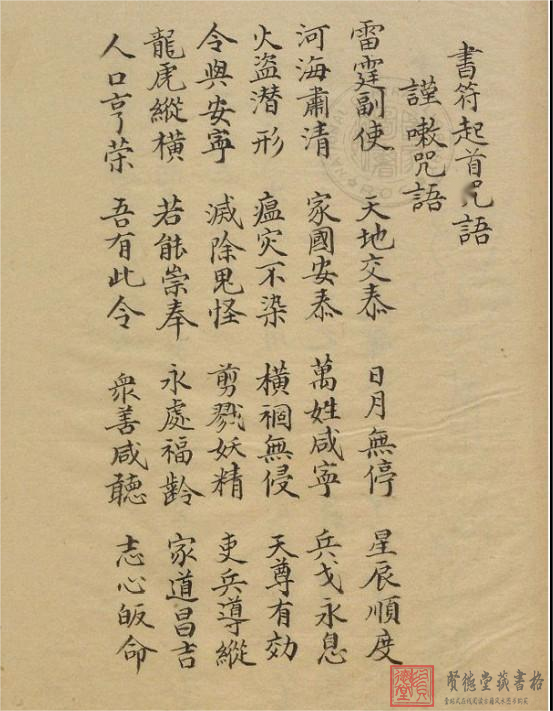 書符起首咒語
謹嗽咒語
雷霆副使 天地交泰 日月無停 星辰順度
河海肅清 家國安泰 萬姓咸寧 兵戈永息
火盜潛形 瘟灾不染 橫禍無侵 天尊有効
令與安寧 滅除鬼怪 剪戮妖精 吏兵導縱
龍虎縱橫 若能崇奉 永處福齡 家道昌吉
人口亨荣 吾有此令 衆善咸聽 志心皈命
賢德堂藏書格